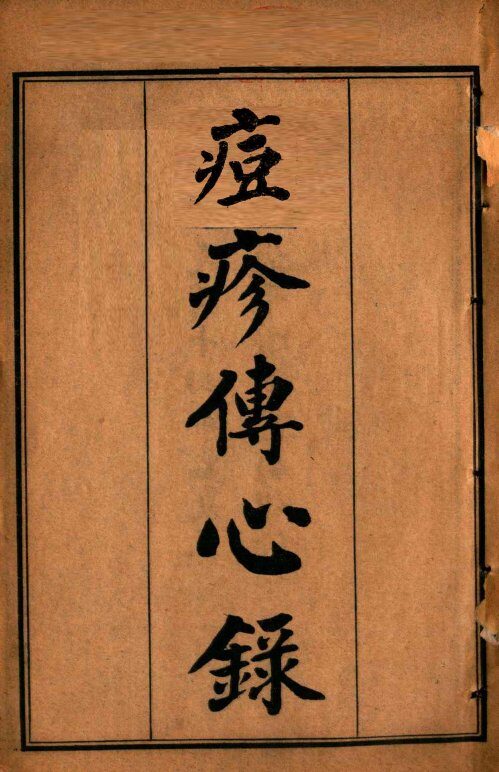 痘疹傳心錄